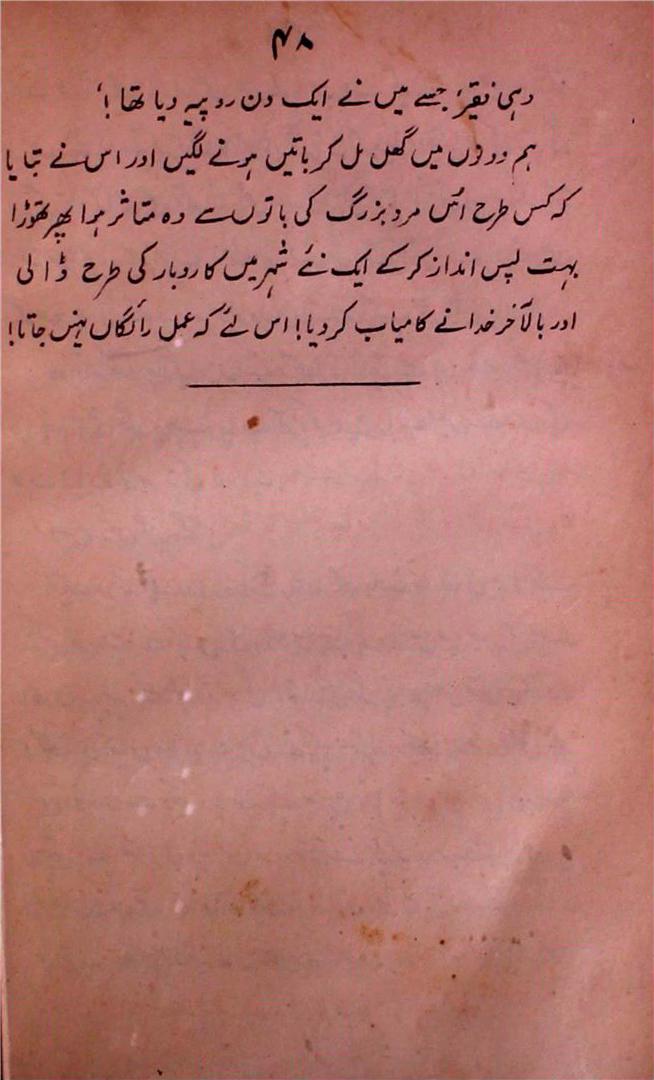 ۴۸
وہی فقیر، جسے میں نے ایک دن روپیہ دیا تھا!،
ہم دونوں میں گھل مل کر باتیں ہونے لگیں اور اس نے بتایا
کہ کس طرح اس مرد بزرگ کی باتوں سے وہ متاثر ہوا پھر تھوڑا
بہت پس انداز کر کے ایک نئے شہر میں کاروبار کی طرح ڈالی
اور بالآخر خدا نے کامیاب کر دیا! اس لئے کہ عمل رائگاں نہیں جاتا!